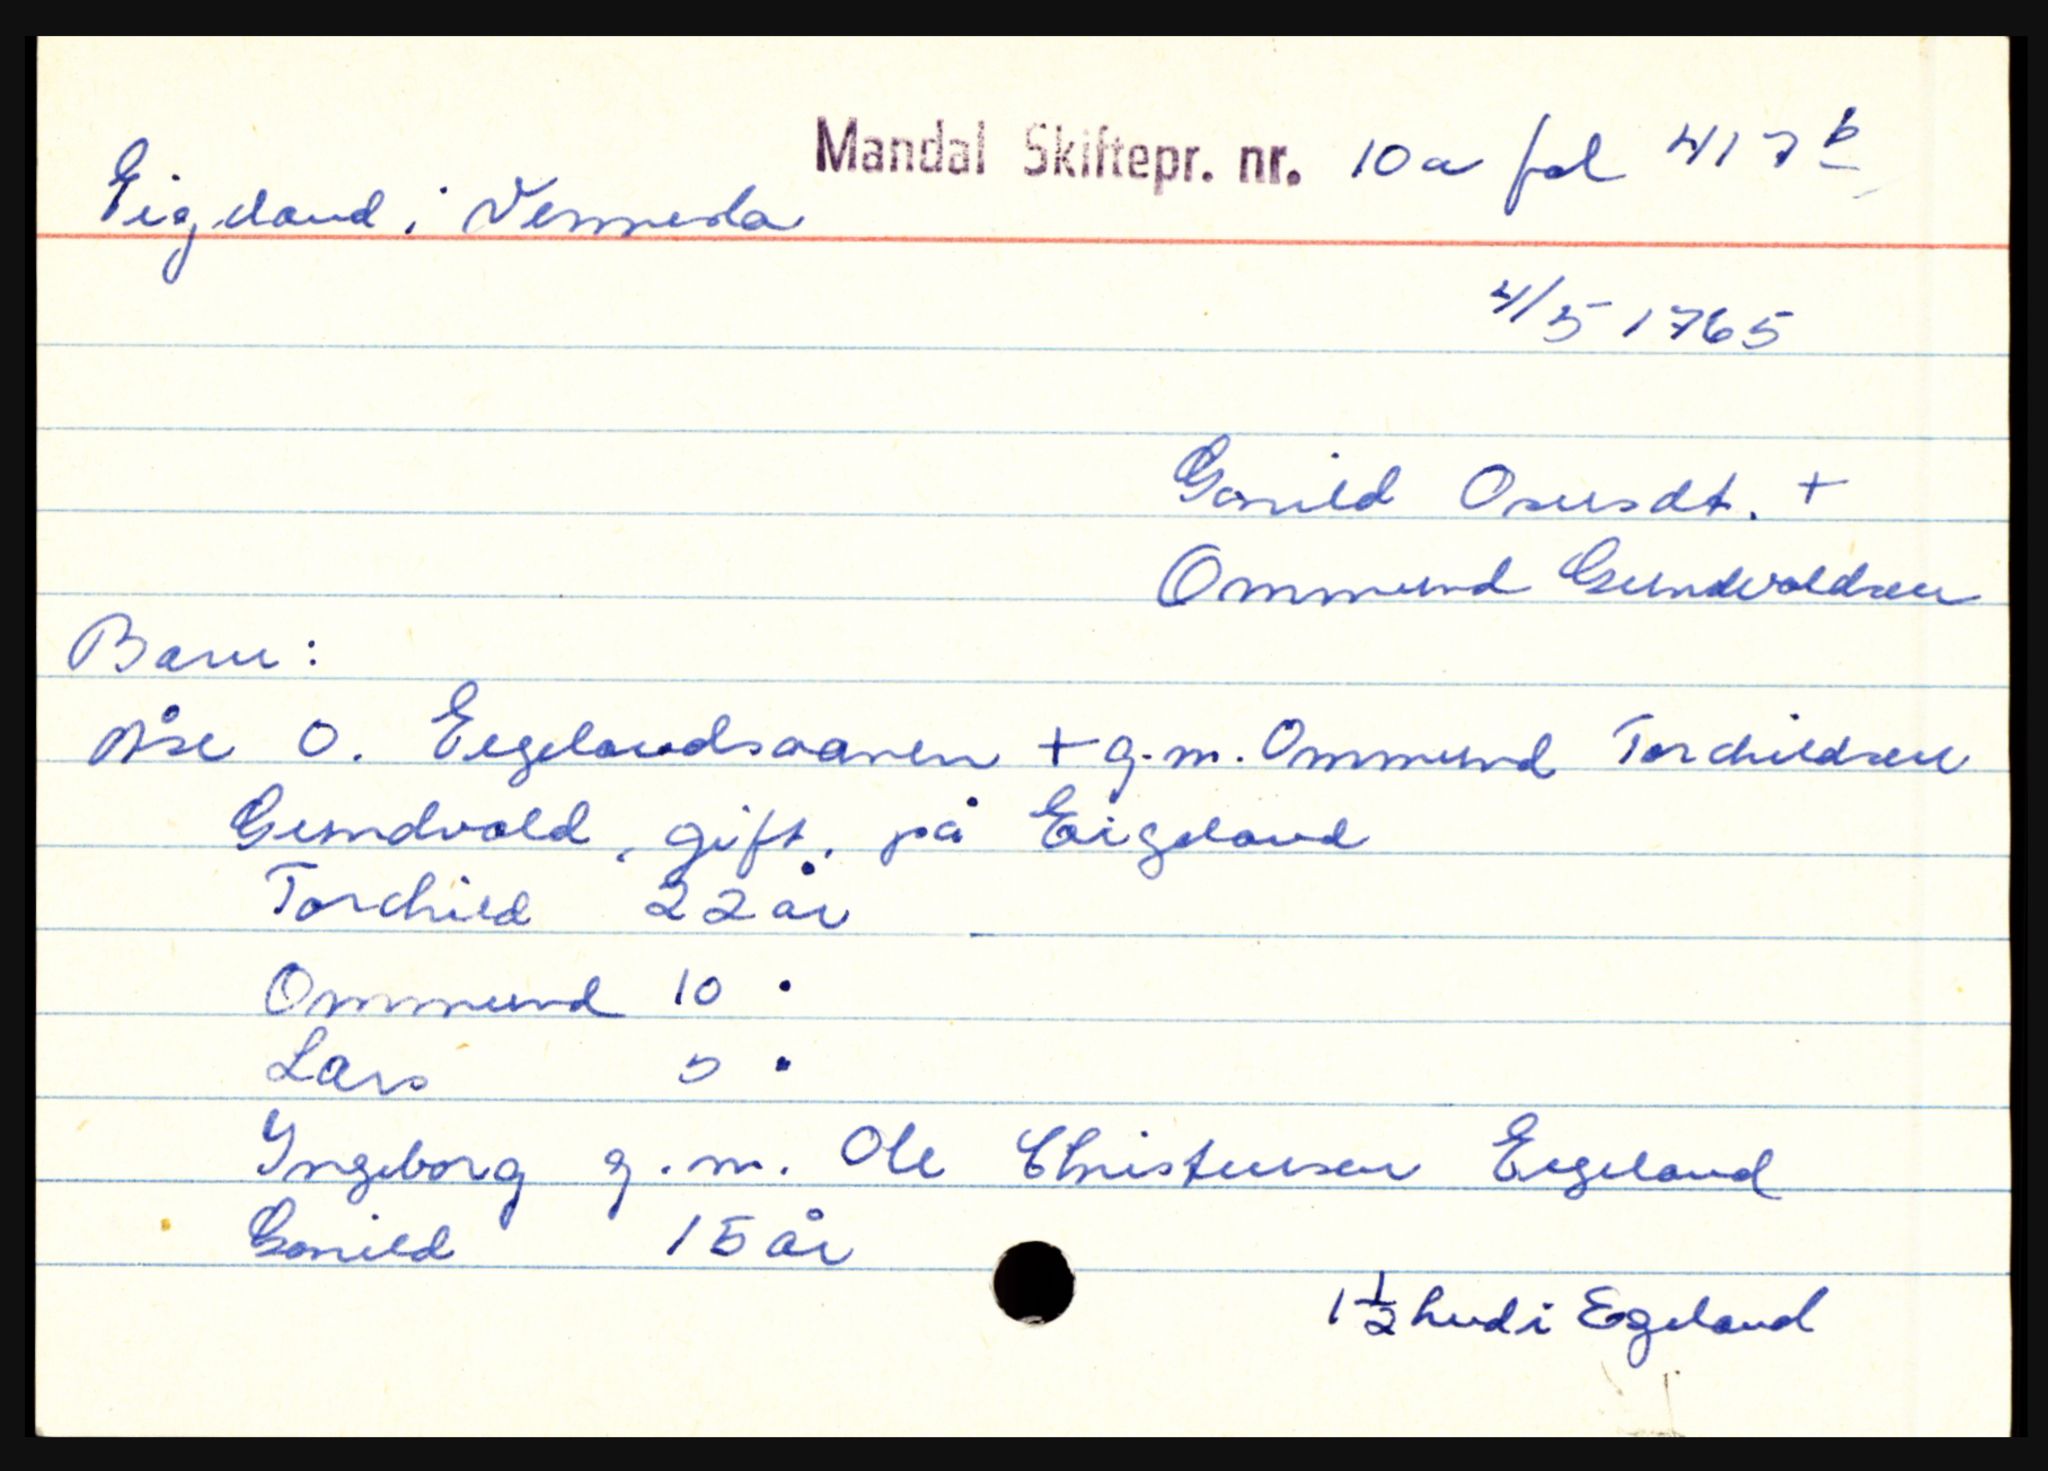 Mandal Skiftepr. nr. 10a fol 417b
Eigeland i Vennesla
4/5 1765
Gonild Osusdt. +
Ommund Gundvoldsen
Barn:
Åse O. Eegelandsaanen + g.m. Ommund Torchildsen
Gundvold, gift, på Eigeland
Torchild 22 år
Ommund 10 "
Lars 5 "
Yngeborg g.m. Ole Christensen Eegeland
Gonild 15 år
1 1/2 hud i Egeland